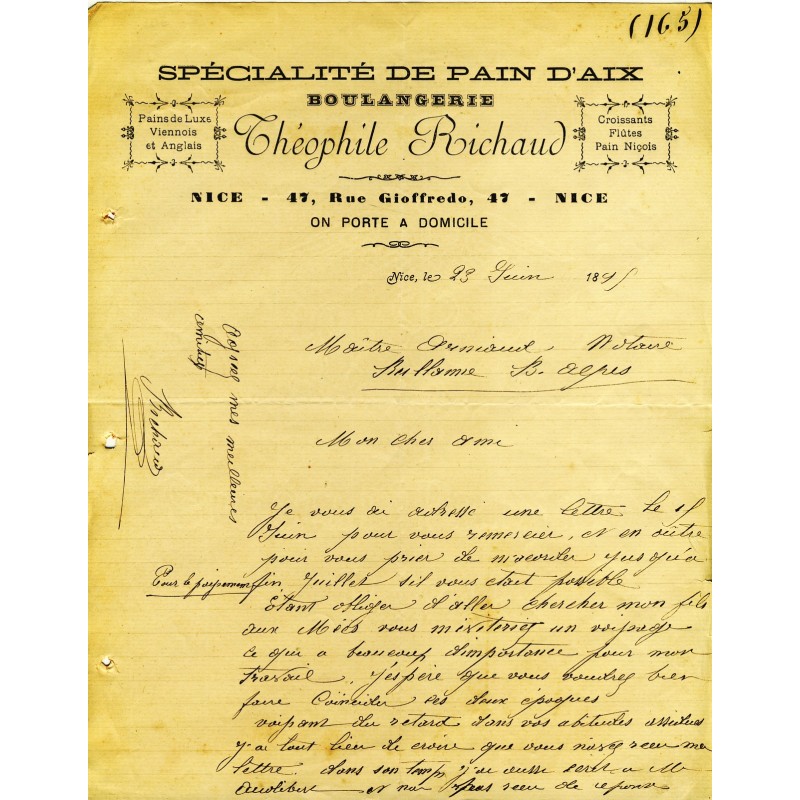 (165)
SPÉCIALITÉ DE PAIN D'AIX
BOULANGERIE
Pains de Luxe
Viennois
et Anglais
Théophile Richaud
Croissants
Flûtes
Pain Niçois
NICE - 47, Rue Gioffredo, 47 - NICE
ON PORTE A DOMICILE
Nice, le 23 Juin 1895
Maître Arniaud, Notaire
B. alpes
Mon cher ami
Je vous ai adressé une lettre le 15
Juin pour vous remercier, et en oûtre
pour vous prier de m'accorder jusqu'a
Pour le paiyement fin Juillet s'il vous etait possible
Étant obliger d'aller chercher mon fils
aux Mées vous m'éviteriez un voyage
ce qui a beaucoup d'importance pour mon
travail. J'éspère que vous voudrez bien
faire Coincider les deux époques
voyant du retard dans vos abitudes assidues
y'a tout lieu de croire que vous navez recu ma
lettre, dans son temp, j'ai aussi ecrit a Me
et nai pas recu de reponse
agréé mes meilleures
amitiés
Richaud